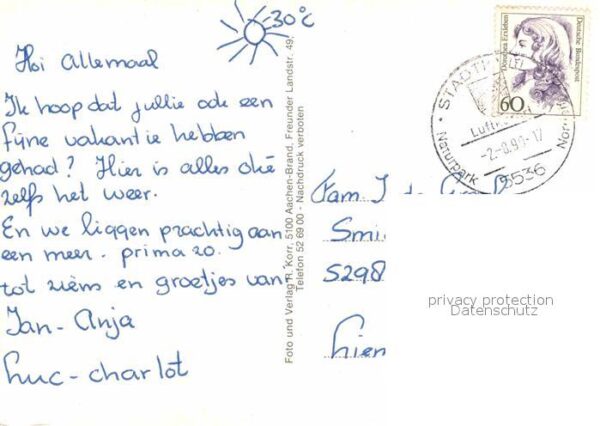 30°C
Hoi allemaal
Ik hoop dat jullie ook een
fijne vakantie hebben
gehad? Hier is alles oké
zelfs het weer.
En we liggen prachtig aan
een meer. prima zo.
tot ziens en groetjes van
Jan - Anja
Luc - charlot
Foto und Verlag R. Korr, 5100 Aachen-Brand, Freunder Landstr. 49.
Telefon 52 69 00 - Nachdruck verboten
Deutsche Bundespost
Dorothea Erxleben
60
STADT
Luftk
-2.-8.90-17
Naturpark
Nor
5536
Fam J de
Smi
5298
Lien
privacy protection
Datenschutz